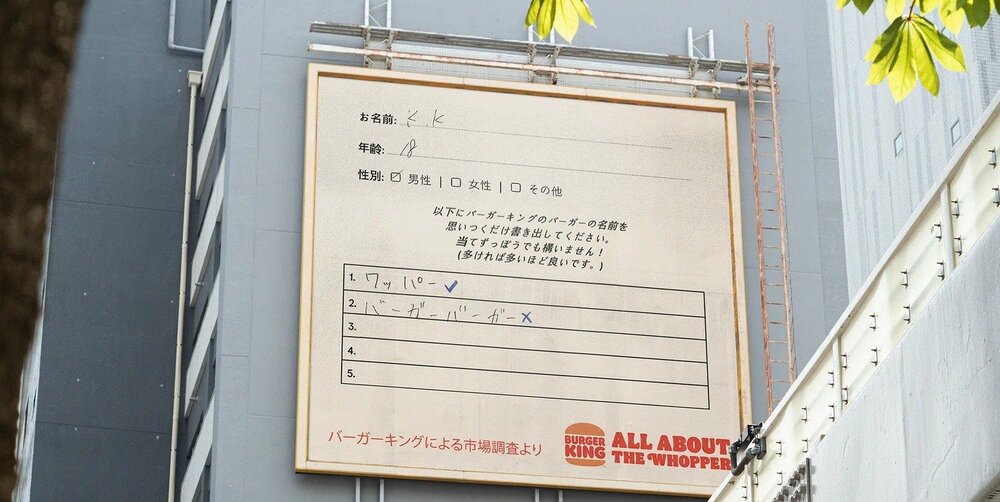 お名前: K.K
年齢: 18
性別: ☑ 男性 | ☐ 女性 | ☐ その他
以下にバーガーキングのバーガーの名前を
思いつくだけ書き出してください。
当てずっぽうでも構いません！
(多ければ多いほど良いです。)
1. ワッパー ✓
2. バーガーバーガー ×
3.
4.
5.
バーガーキングによる市場調査より
BURGER
KING
ALL ABOUT
THE WHOPPER